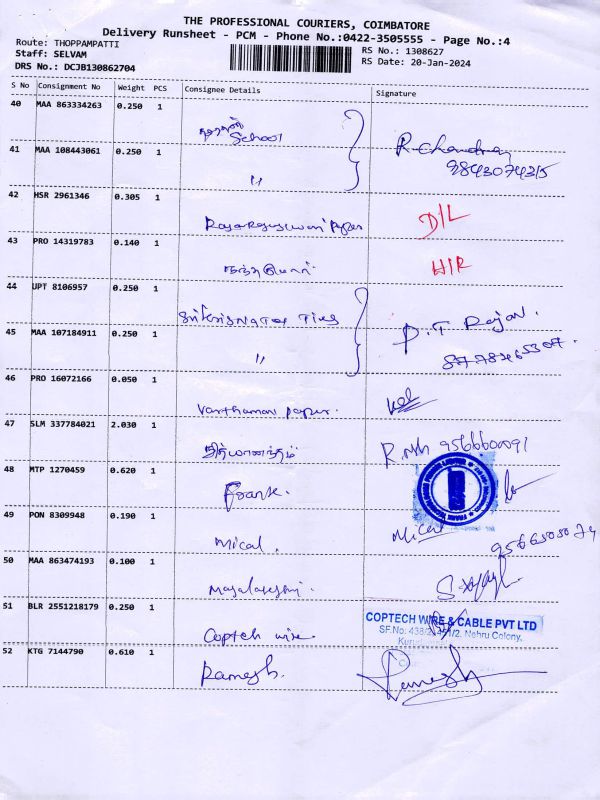 THE PROFESSIONAL COURIERS, COIMBATORE
Delivery Runsheet - PCM - Phone No.:0422-3505555 - Page No.:4
Route: THOPPAMPATTI
RS No.: 1308627
Staff: SELVAM
RS Date: 20-Jan-2024
DRS No.: DCJB130862704
S No Consignment No Weight PCS Consignee Details Signature
40 MAA 863334263 0.250 1
School
R. Chandran
9843074215
41 MAA 108443061 0.250 1
"
42 HSR 2961346 0.305 1
Rajarajeswari Paper D/L
43 PRO 14319783 0.140 1
H/R
44 UPT 8106957 0.250 1
P. T Rajan.
45 MAA 107184911 0.250 1
"
46 PRO 16072166 0.050 1
Varthaman paper.
47 SLM 337784021 2.030 1
நித்யானந்தம் 9566600091
48 MTP 1270459 0.620 1
Frank.
49 PON 8309948 0.190 1
Mical.
Mical
9566505074
50 MAA 863474193 0.100 1
51 BLR 2551218179 0.250 1
Coptech wire
COPTECH WIRE & CABLE PVT LTD
Nehru Colony,
52 KTG 7144790 0.610 1
Ramesh.
Ramesh